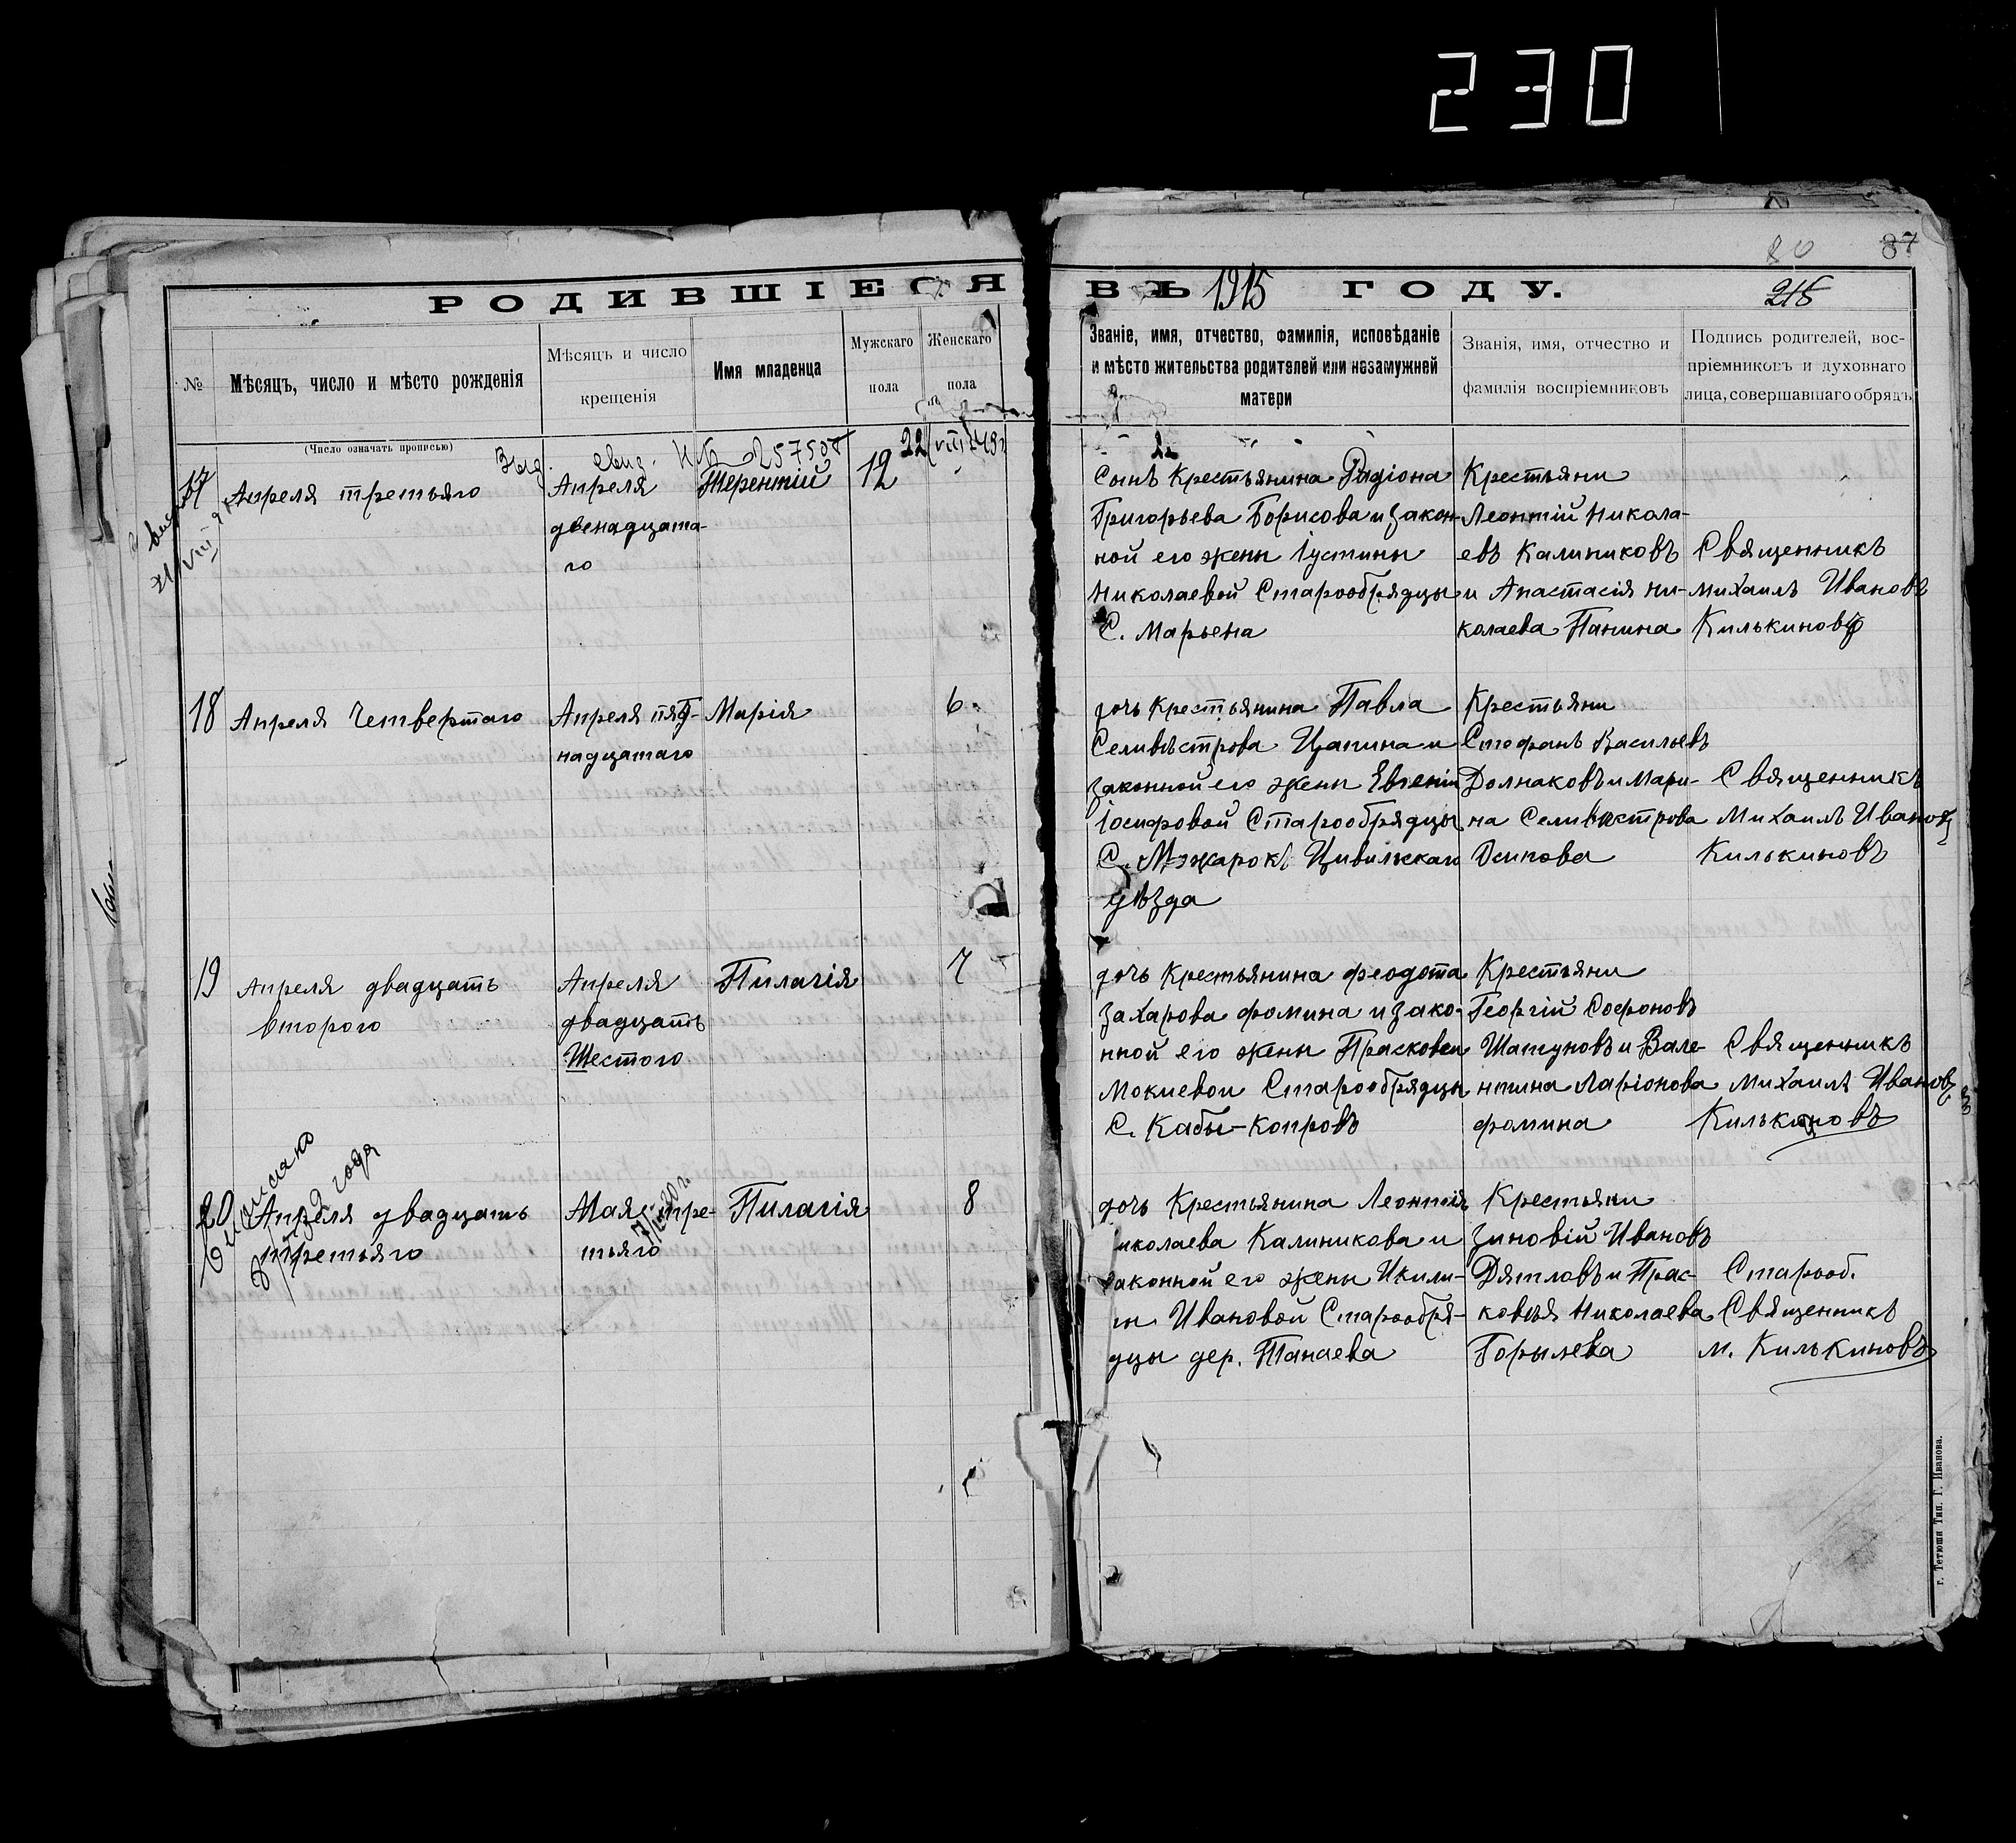 230
80 87
РОДИВШІЕСЯ ВЪ 1915 ГОДУ.
215
№
Мѣсяцъ, число и мѣсто рожденія
Мѣсяцъ и число
крещенія
Имя младенца
Мужскаго
пола
Женскаго
пола
Званіе, имя, отчество, фамилія, исповѣданіе
и мѣсто жительства родителей или незамужней
матери
Званія, имя, отчество и
фамилія воспріемниковъ
Подпись родителей, вос-
пріемниковъ и духовнаго
лица, совершавшаго обрядъ
(Число означать прописью)
17
Апреля третьяго
Апреля
двенадцата-
го
Терентій
12
Сынъ Крестьянина Радіона
Григорьева Борисова и закон-
ной его жены Іустины
Николаевой Старообрядцы
С. Марьена
Крестьяни
Леонтій Никола-
евъ Калиниковъ
и Анастасія Ни-
колаева Панина
Священникъ
Михаилъ Ивановъ
Килькиновъ
18
Апреля Четвертаго
Апреля пят-
надцатаго
Марія
6
дочь Крестьянина Павла
Селивѣстрова Цапина и
законной его жены Евгении
Іосифовой Старообрядцы
С. Мэжарокъ Цивильскаго
уѣзда
Крестьяни
Стефанъ Васильевъ
Долнаковъ и Мари-
на Селивѣстрова
Осипова
Священникъ
Михаилъ Ивановъ
Килькиновъ
19
Апреля двадцать
второго
Апреля
двадцать
Шестого
Пилагія
7
дочь Крестьянина Феодота
Захарова Фомина и зако-
нной его жены Прасковеи
Мокиевои Старообрядцы
С. Кабы-Копровъ
Крестьяни
Георгій Софоновъ
Шатуновъ и Вале-
нтина Ларіонова
Фомина
Священникъ
Михаилъ Ивановъ
Килькиновъ
20
Апреля двадцать
третьяго
Мая тре-
тьяго
Пилагія
8
дочь Крестьянина Леонтія
иколаева Калиникова и
законной его жены Икили-
ны Ивановой Старообря-
дцы дер. Танаева
Крестьяни
Зиновій Ивановъ
Дятловъ и Прас-
ковья Николаева
Горылева
Старооб.
Священникъ
М. Килькиновъ
г. Тетюши Тип. Г. Иванова.